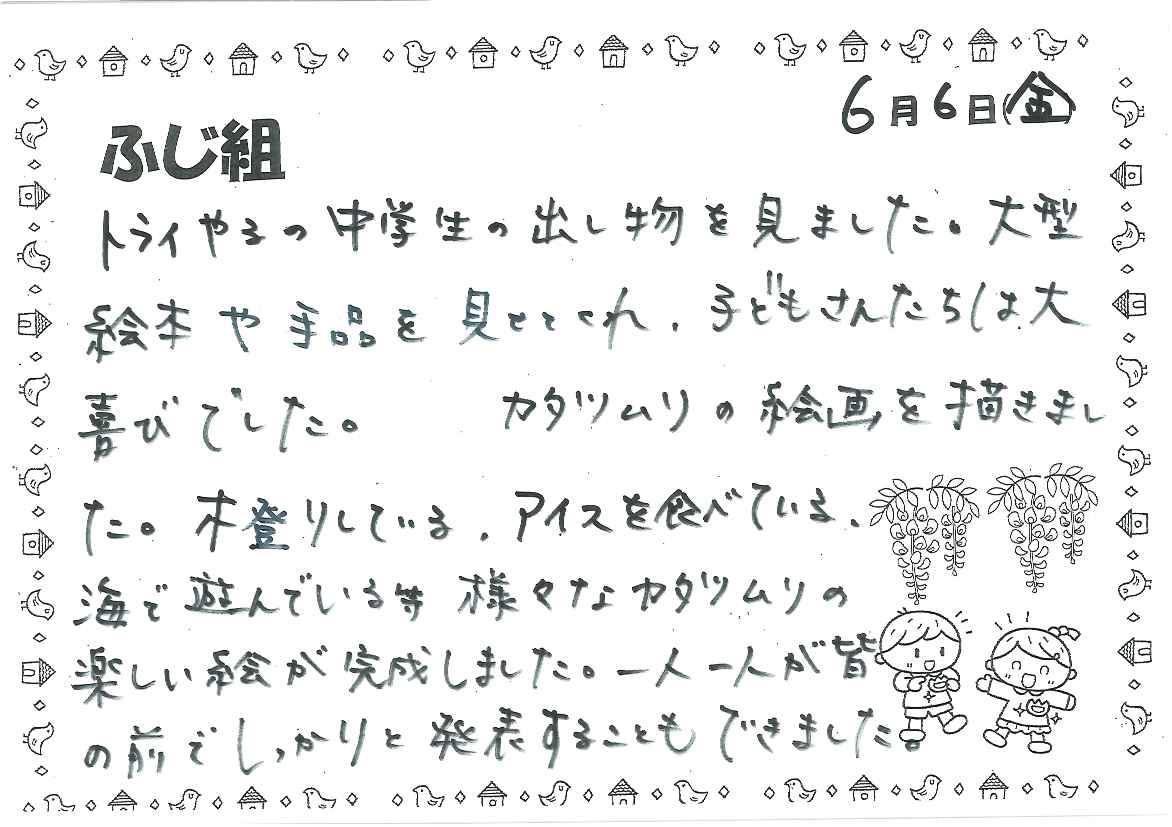 6月6日(金)
ふじ組
トライやるの中学生の出し物を見ました。大型
絵本や手品を見せてくれ、子どもさんたちは大
喜びでした。 カタツムリの絵画を描きまし
た。木登りしている、アイスを食べている、
海で遊んでいる等 様々なカタツムリの
楽しい絵が完成しました。一人一人が皆
の前でしっかりと発表することもできました。